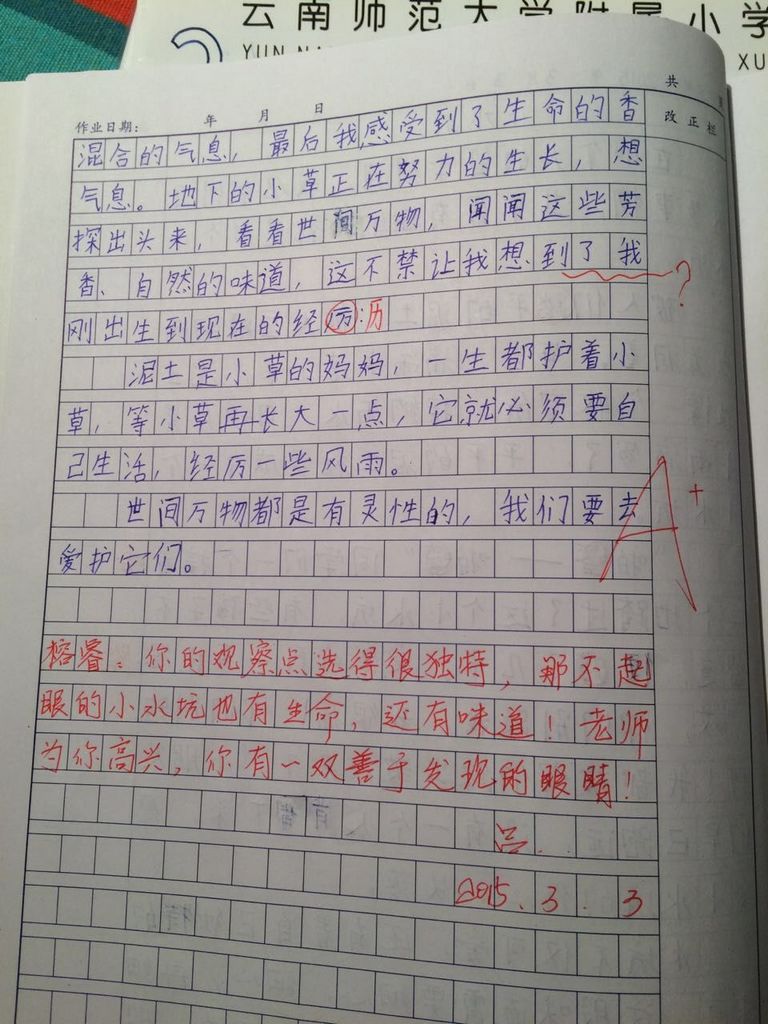 云南师范大学附属小学
YUN NA
XU
共
作业日期： 年 月 日
改正栏
混合的气息，最后我感受到了生命的香
气息。地下的小草正在努力的生长，想
探出头来，看看世间万物，闻闻这些芳
香、自然的味道，这不禁让我想到了我
?
刚出生到现在的经厉:历
泥土是小草的妈妈，一生都护着小
草，等小草再长大一点，它就必须要自
己生活，经厉一些风雨。
世间万物都是有灵性的，我们要去
爱护它们。
A+
榕睿：你的观察点选得很独特，那不起
眼的小水坑也有生命，还有味道！老师
为你高兴，你有一双善于发现的眼睛！
吕.
2015.3.3